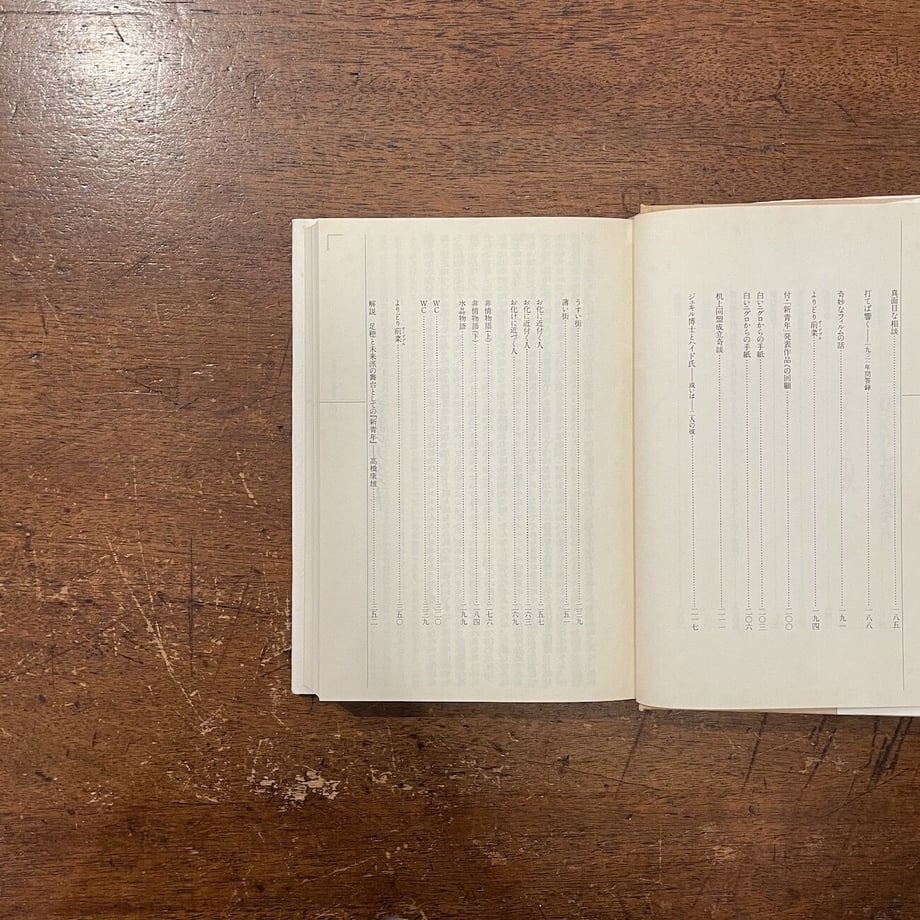 真面目な相談……八五
打てば響く——一九三一年問答録……一八八
奇妙なフィルムの話……一九一
よりどり前菜……一九四
付・「新青年」発表作品への回顧……二〇〇
白いニグロからの手紙……二〇三
白いニグロからの手紙……二〇六
机上同盟成立奇談……二一一
ジェキル博士とハイド氏——或いは——二人の彼……二一七
うすい街……二三九
薄い街……二五一
お化に近付く人……二五七
お化に近付く人……二六三
お化けに近づく人……二六九
非情物語(上)……二七六
非情物語(下)……二八四
水晶物語……二九九
WC……三二〇
WC……三三九
よりどり前菜……三五〇
解説 足穂と未来派の舞台としての『新青年』——高橋康雄……三五二